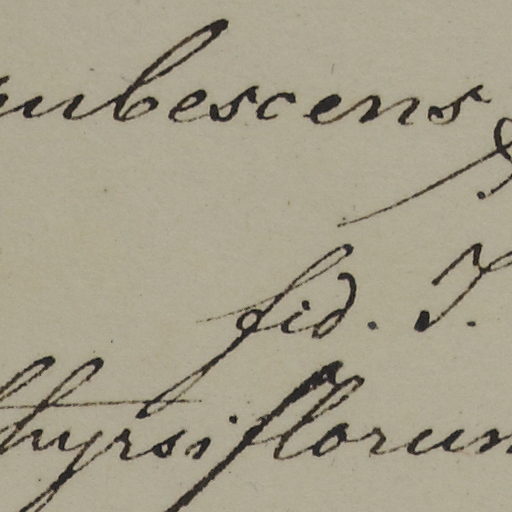 ubescens
fid. T.
thyrsiflorum